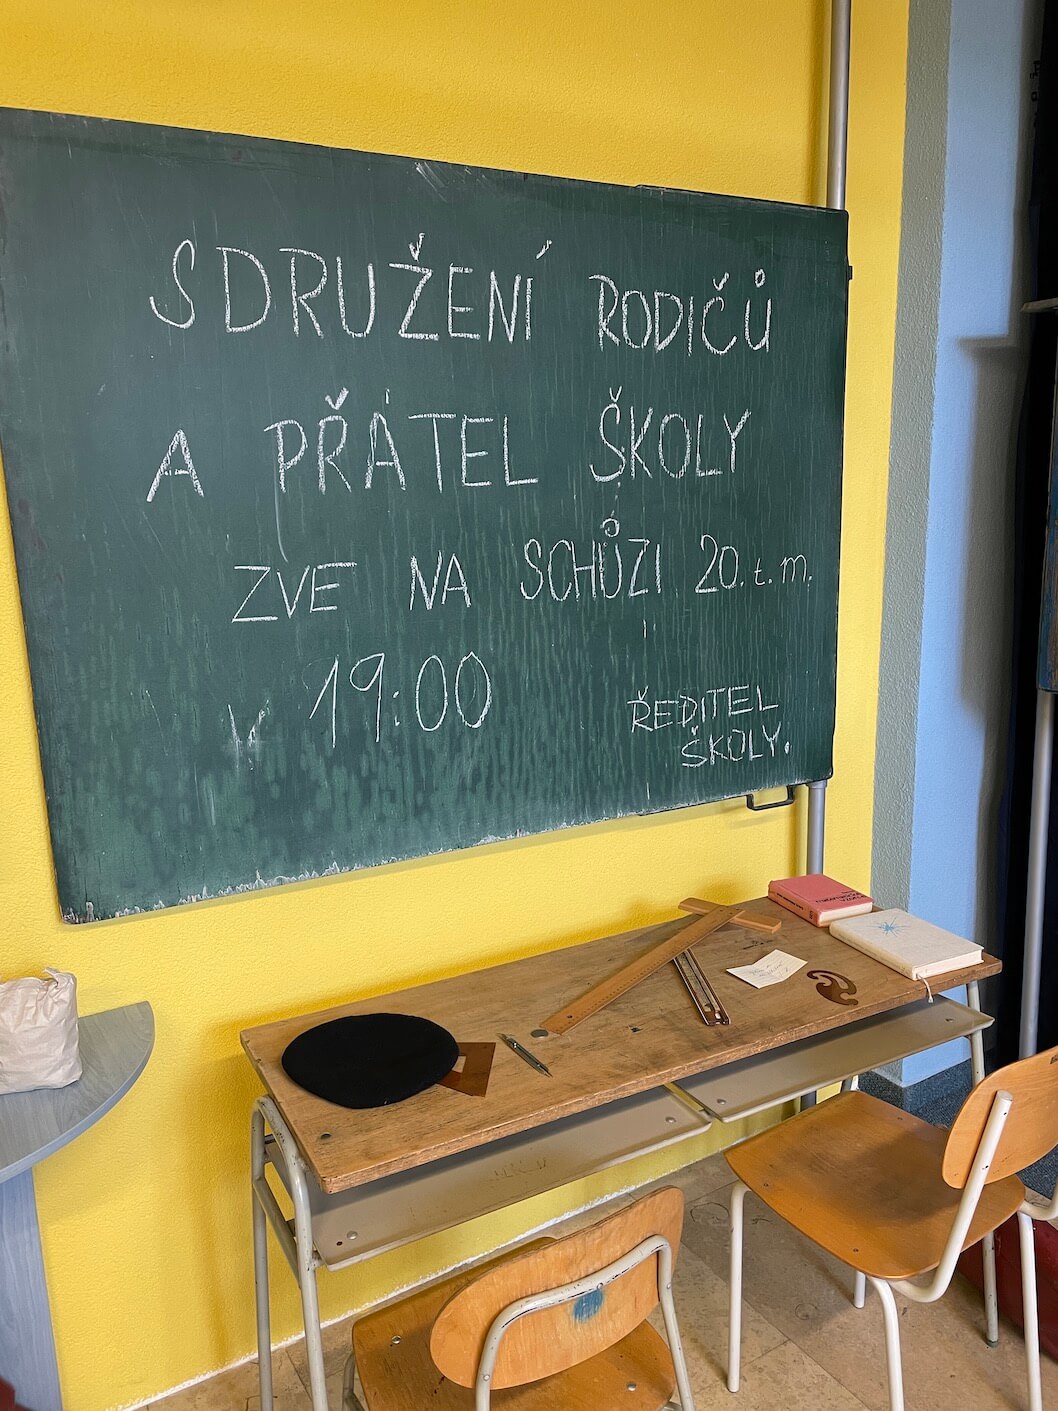 SDRUŽENÍ RODIČŮ
A PŘÁTEL ŠKOLY
ZVE NA SCHŮZI 20. t. m.
V 19:00
ŘEDITEL
ŠKOLY.